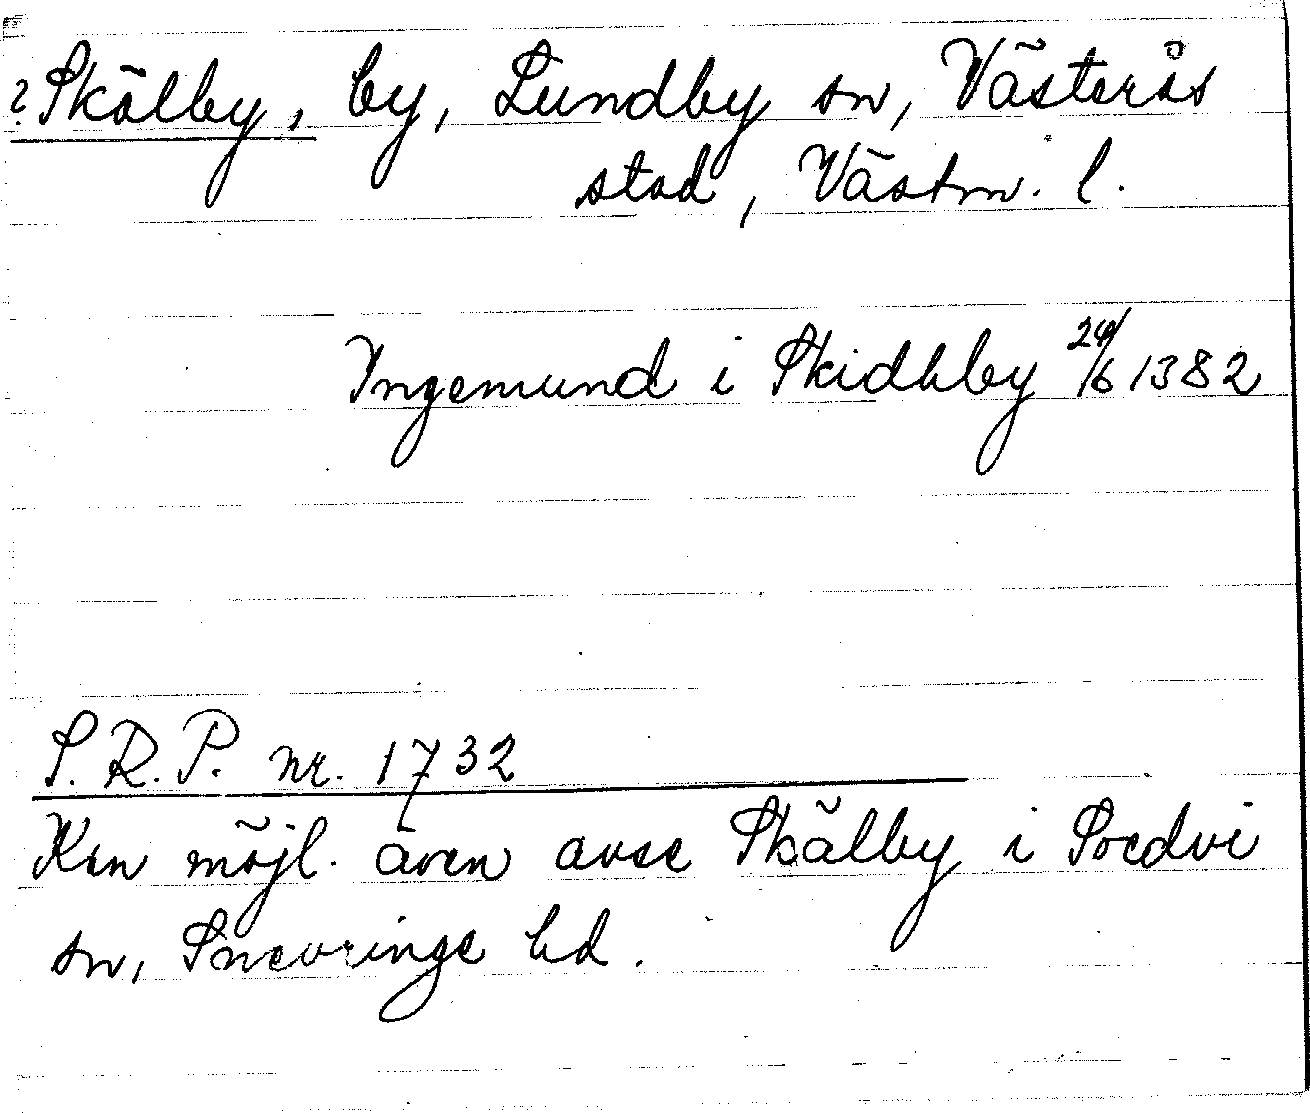 ? Skälby, by, Lundby sn, Västerås
stad, Västm. l.
Ingemund i Skidhby 24/6 1382
S.R.P. nr. 1732
Kan möjl. även avse Skälby i Svedvi
sn, Snevringe hd.